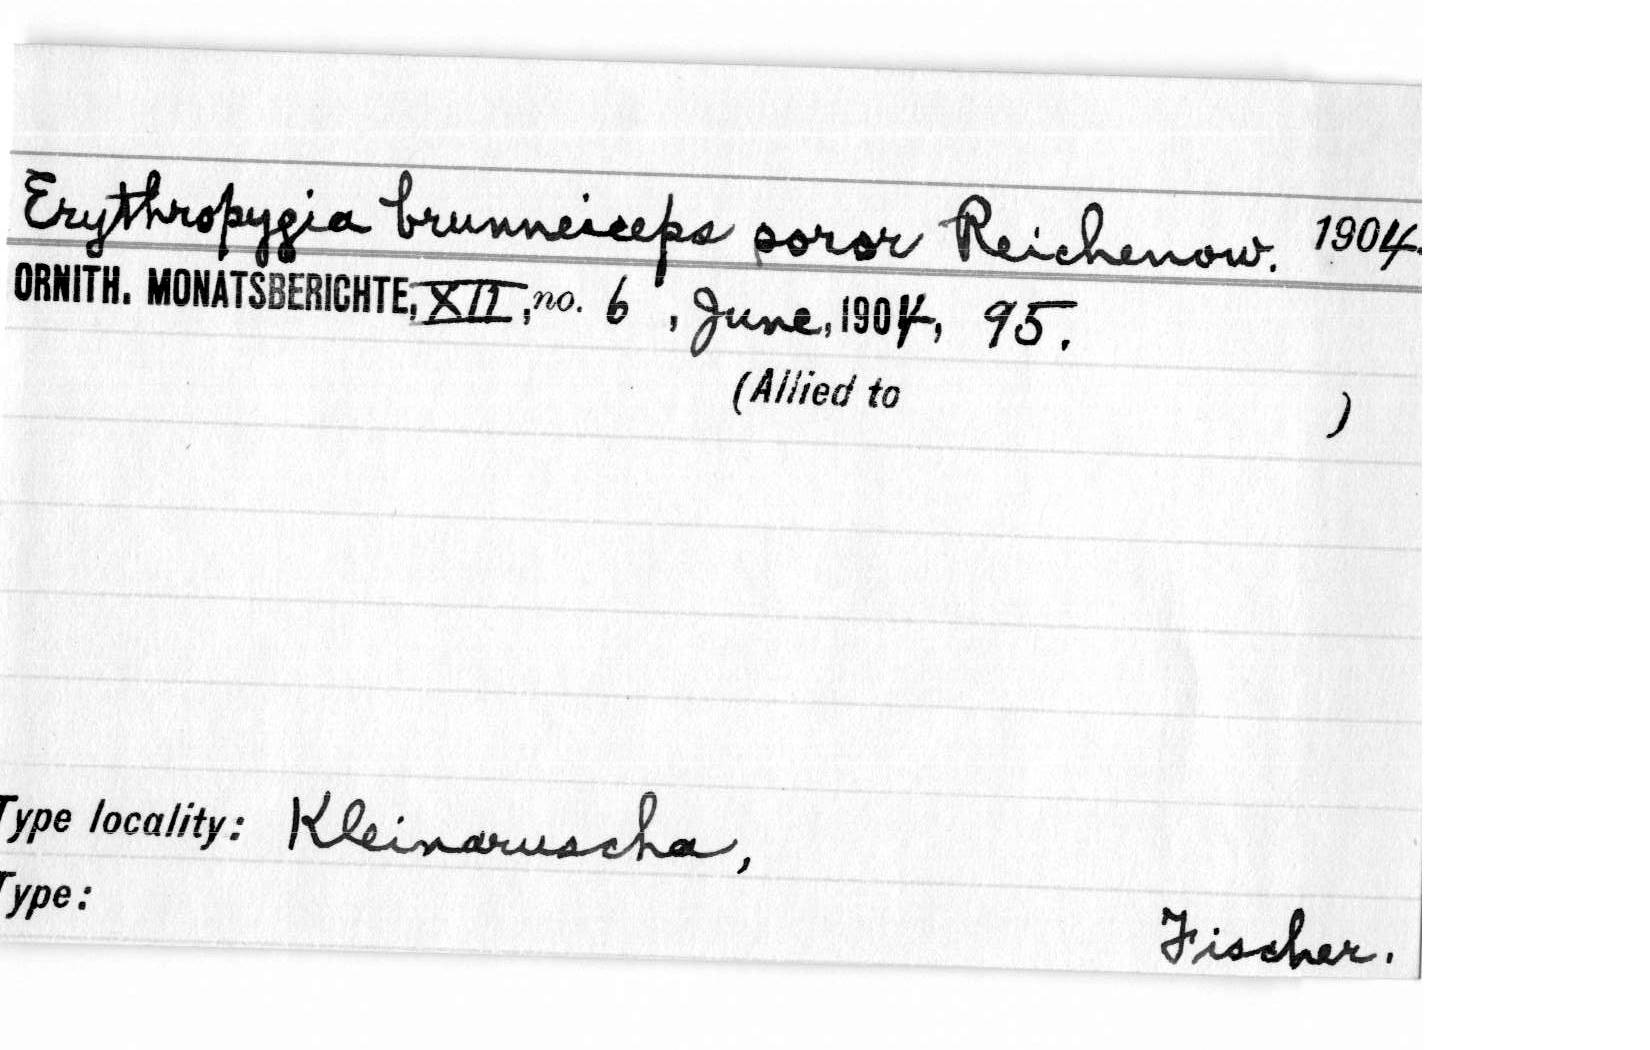 Erythropygia brunneiceps soror Reichenow. 1904.
ORNITH. MONATSBERICHTE, XII, no. 6, June, 1904, 95.
(Allied to )
Type locality: Kleinaruscha,
Type:
Fischer.